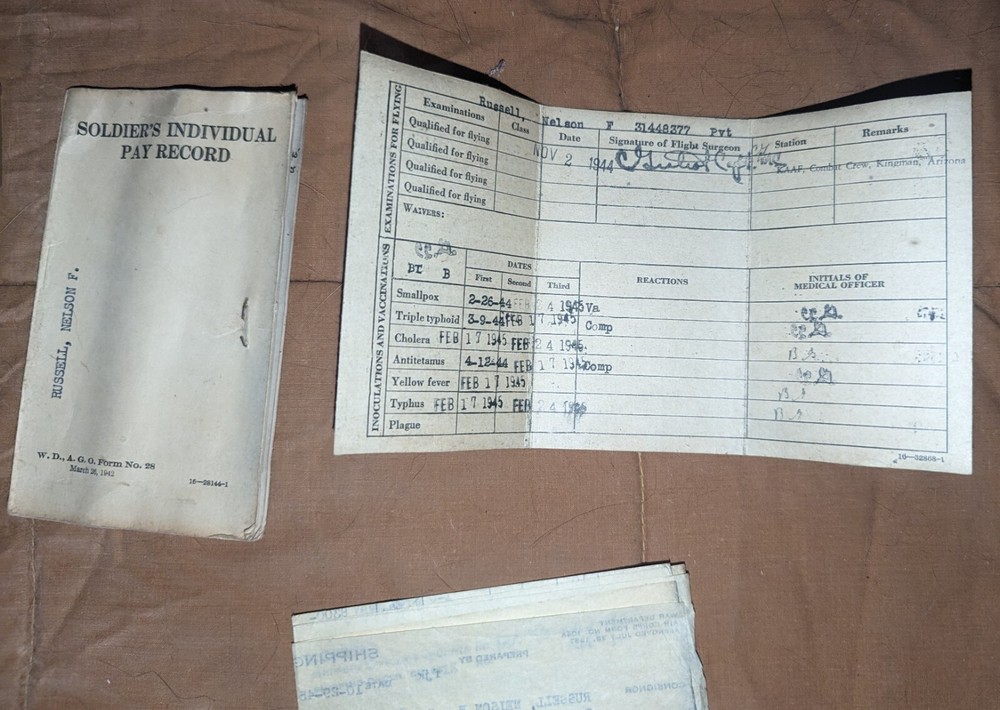 SOLDIER'S INDIVIDUAL
PAY RECORD
RUSSELL, NELSON F.
W. D., A. G. O. Form No. 28
March 26, 1942
16—28144-1
Russell, Nelson F 31448377 Pvt
EXAMINATIONS FOR FLYING
Examinations Class Date Signature of Flight Surgeon Station Remarks
Qualified for flying NOV 2 1944 KAAF, Combat Crew, Kingman, Arizona
Qualified for flying
Qualified for flying
Qualified for flying
WAIVERS:
INOCULATIONS AND VACCINATIONS
BT B DATES REACTIONS INITIALS OF
MEDICAL OFFICER
First Second Third
Smallpox 2-26-44 FEB 24 1945 Va
Triple typhoid 3-9-44 FEB 17 1945 Comp
Cholera FEB 17 1945 FEB 24 1945
Antitetanus 4-12-44 FEB 17 1945 Comp
Yellow fever FEB 17 1945
Typhus FEB 17 1945 FEB 24 1945
Plague
SHIPPING
PREPARED BY
DATE 10-29-45
CONSIGNOR
RUSSELL, NELSON F